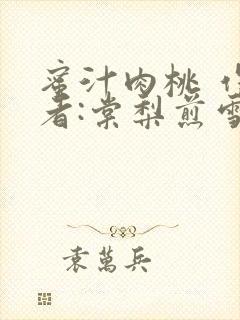 蜜汁肉桃 作
者:棠梨煎雪
袁萬兵